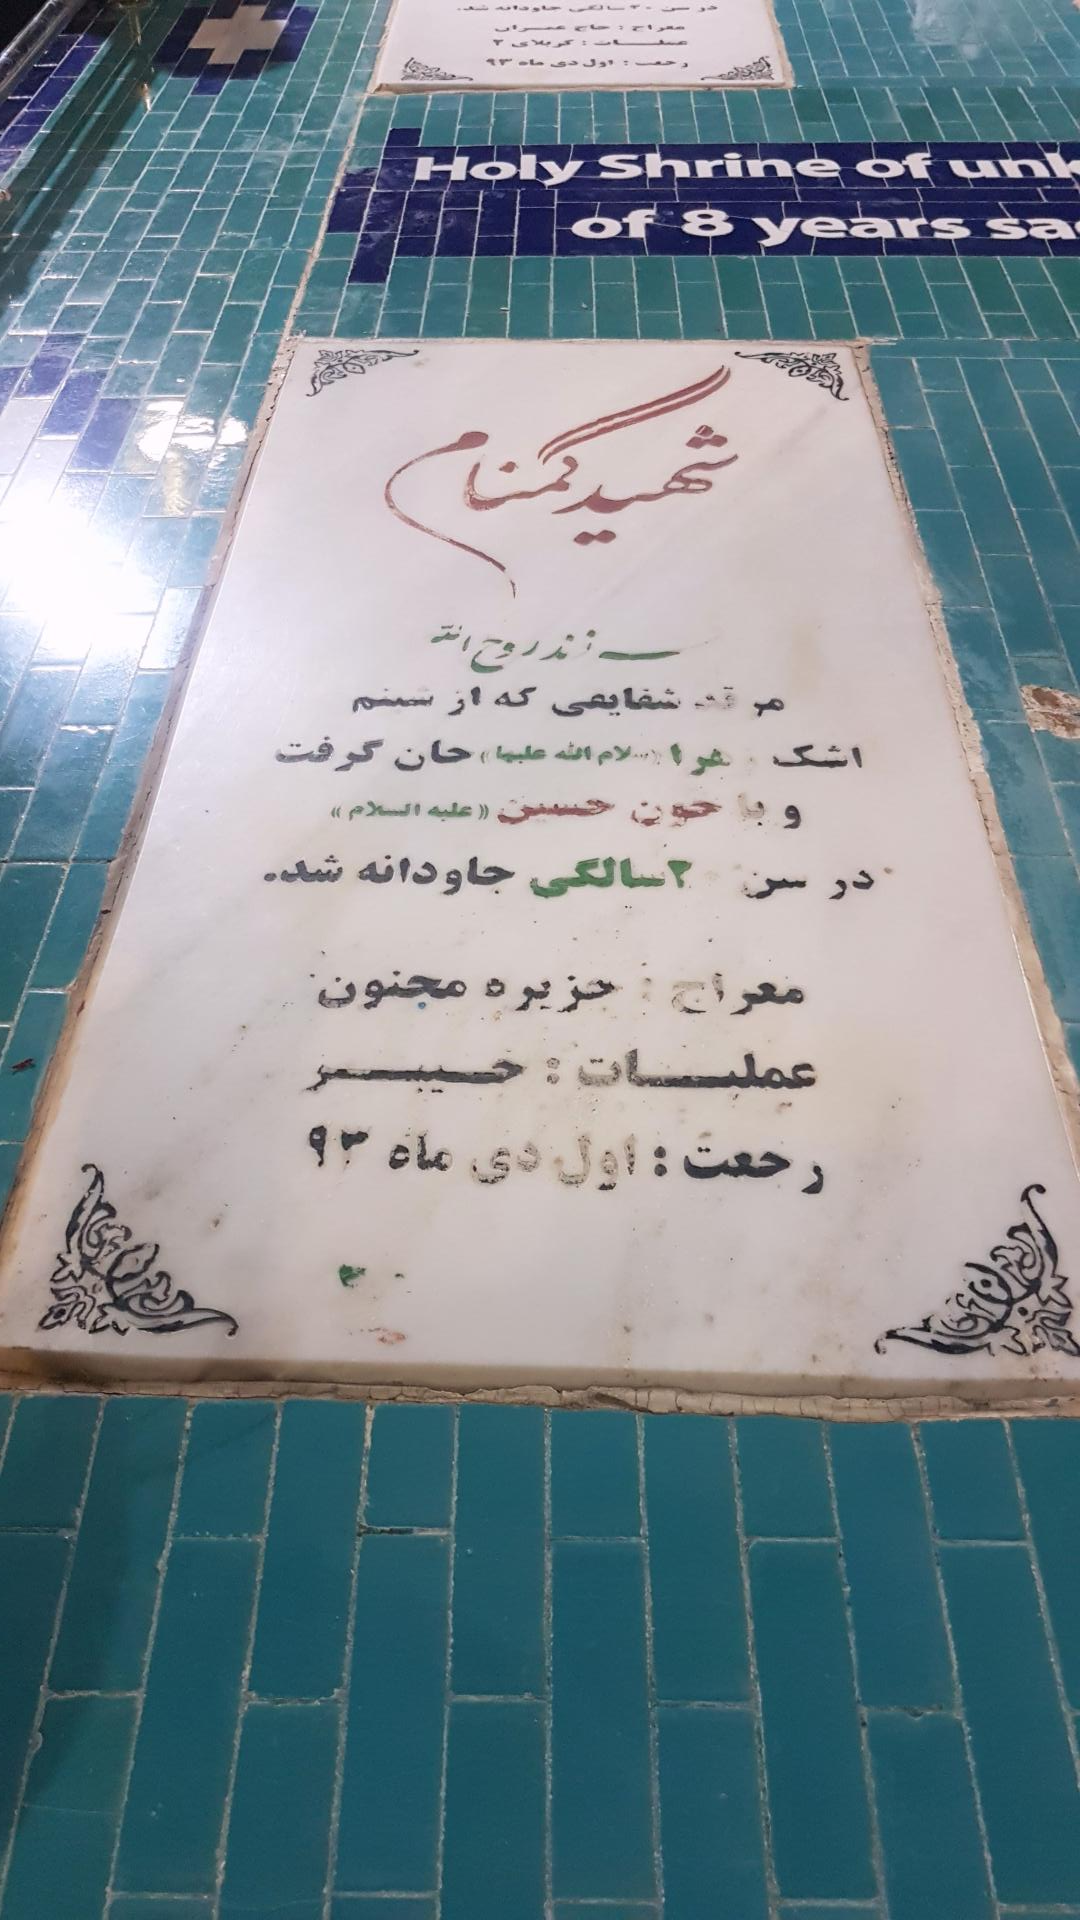 در سن ۲۰ سالگی جاودانه شد.
معراج : حاج عمران
عملیات : کربلای ۲
رحعت : اول دی ماه ۹۳
Holy Shrine of unk
of 8 years sac
شهید گمنام
فرزند روح الله
مرقد شقایقی که از شبنم
اشک زهرا «سلام الله علیها» جان گرفت
و با خون حسین «علیه السلام»
در سن ۲ سالگی جاودانه شد.
معراج : جزیره مجنون
عملیات : خیبر
رحعت : اول دی ماه ۹۳